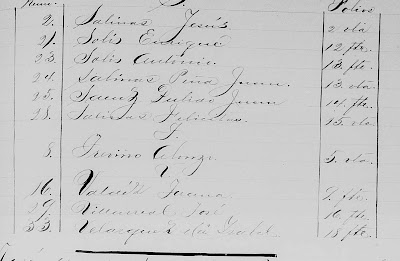 Num. S. Folios
2. Salinas Jesús 2 vta
21. Solis Enrique 12 fte.
23. Solis Antonio. 13. fte.
24. Salinas Peña Juan. 13. vta
25. Juan 14. fte.
28. Salinas 15. vta
T.
8. Treviño 5. vta.
V
16. Juana 9. fte.
29. Villarreal José 16 fte.
33. Velazquez Isabel 18 fte.